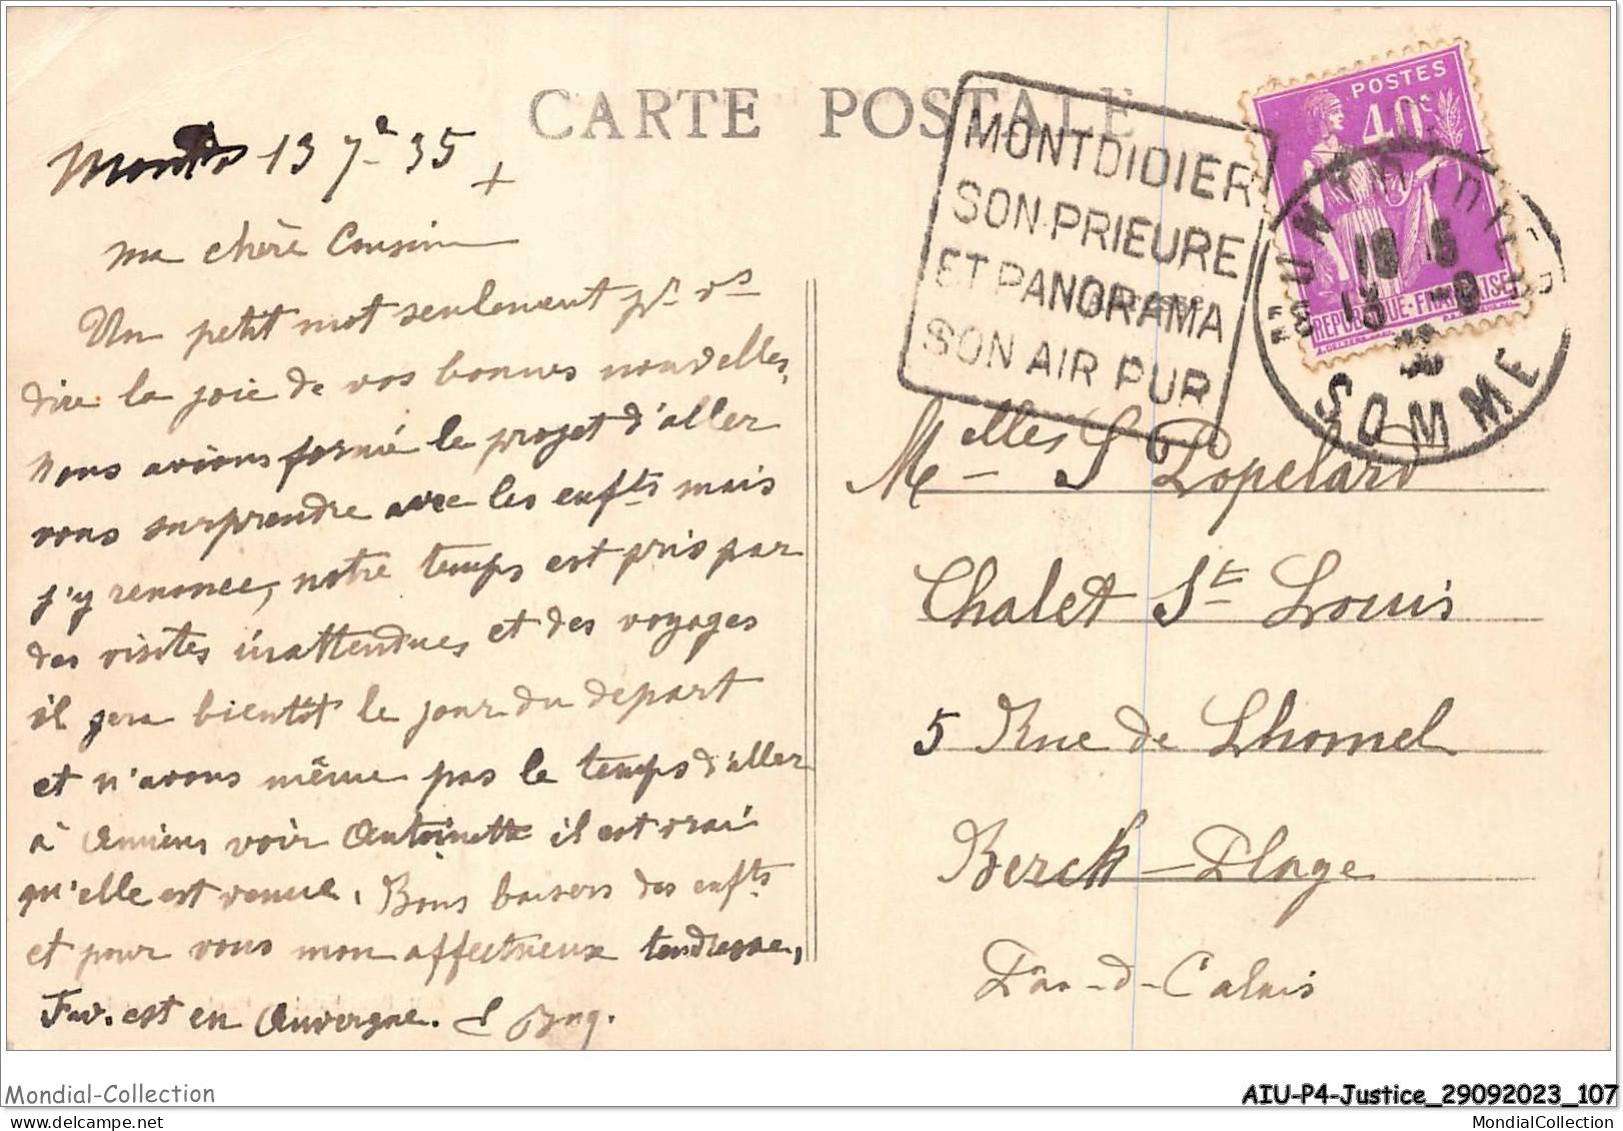 CARTE POSTALE
13 7re 35
+
ma chère Cousine
Un petit mot seulement pr vs
dire la joie de vos bonnes nouvelles,
nous avions formé le projet d'aller
vous surprendre avec les enfts mais
j'y renonce, notre temps est pris par
des visites inattendues et des voyages
il sera bientôt le jour du départ
et n'avons même pas le temps d'aller
à Amiens voir Antoinette il est vrai
qu'elle est venue. Bons baisers des enfts
et pour vous mon affectueuse tendresse,
est en Auvergne.
MONTDIDIER
SON PRIEURE
ET PANORAMA
SON AIR PUR
POSTES
40c
REPUBLIQUE FRANÇAISE
MONTDIDIER
SOMME
Melles S Popelard
Chalet St Louis
5 Rue de Lhomel
Berck-Plage
Pas-d-Calais
Mondial-Collection
AIU-P4-Justice_29092023_107
MondialCollection
MondialCollection